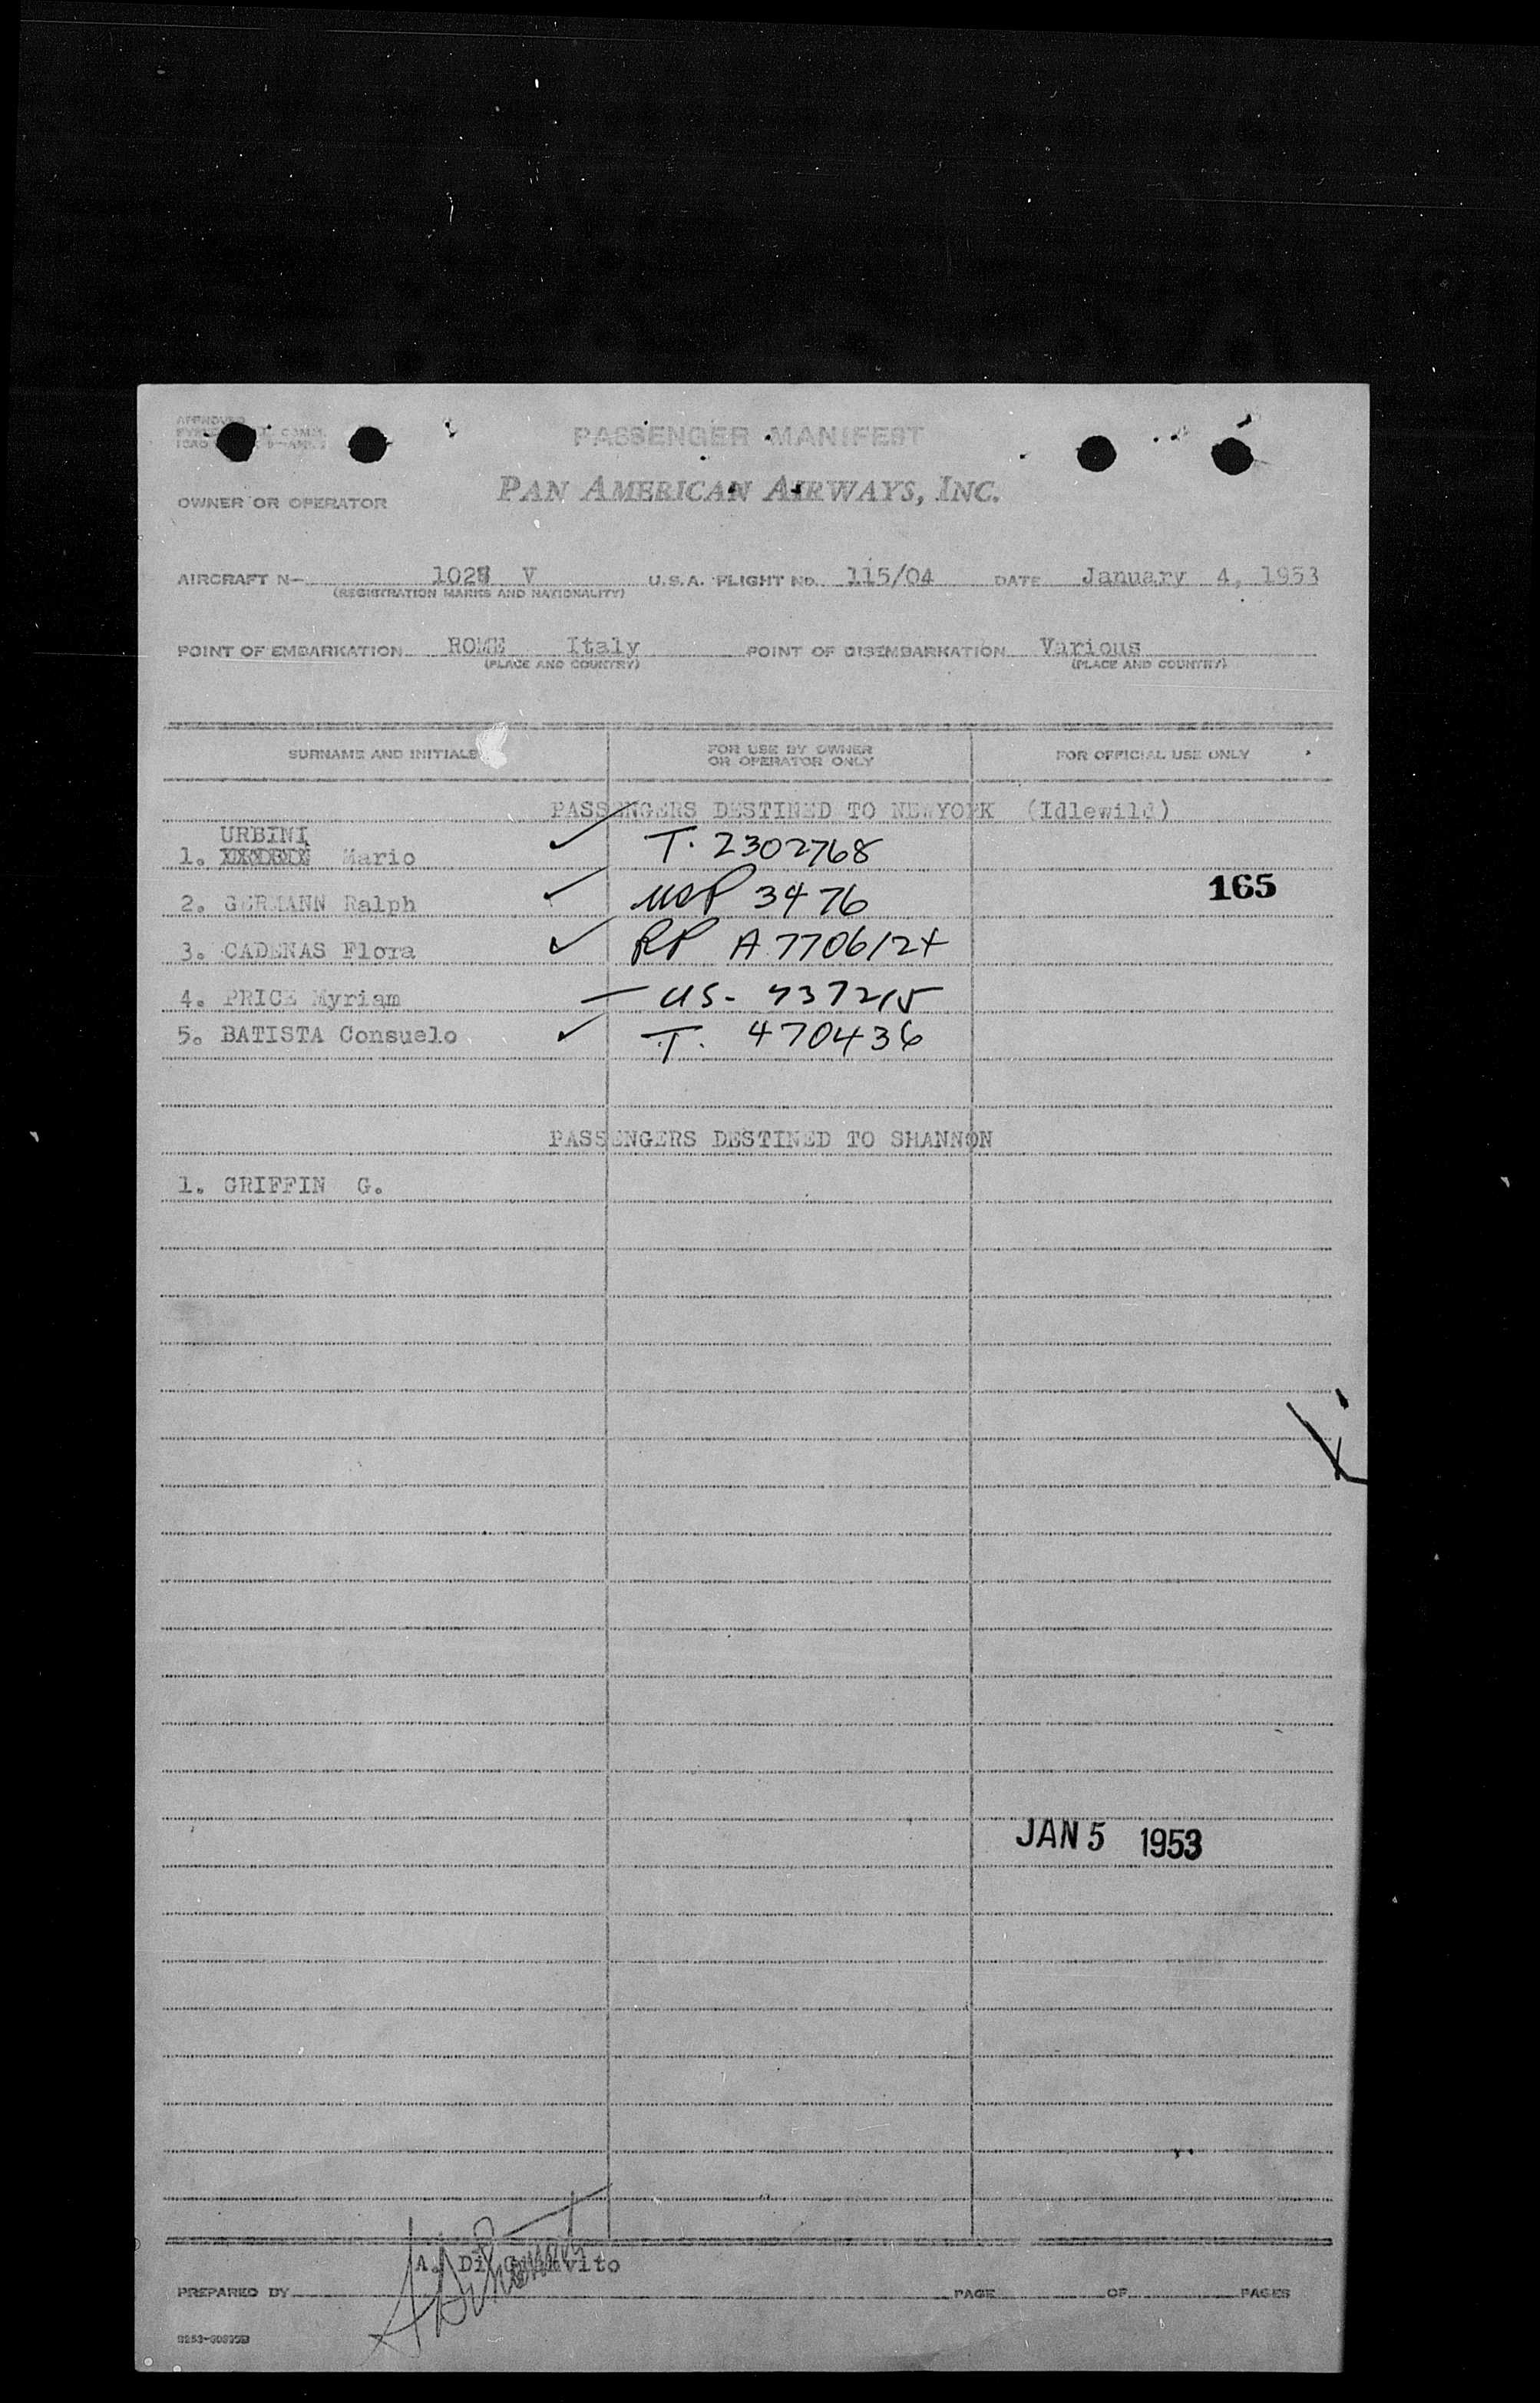 APPROVED
PASSENGER MANIFEST
OWNER OR OPERATOR PAN AMERICAN AIRWAYS, INC.
AIRCRAFT N- 1028 V U.S.A. FLIGHT NO. 115/04 DATE January 4, 1953
(REGISTRATION MARKS AND NATIONALITY)
POINT OF EMBARKATION ROME Italy POINT OF DISEMBARKATION Various
(PLACE AND COUNTRY) (PLACE AND COUNTRY)
SURNAME AND INITIALS FOR USE BY OWNER OR OPERATOR ONLY FOR OFFICIAL USE ONLY
PASSENGERS DESTINED TO NEWYORK (Idlewild)
URBINI
1. Mario T. 2302768
2. GERMANN Ralph USP 3476 165
3. CADENAS Flora RP A 7706124
4. PRICE Myriam US- 737215
5. BATISTA Consuelo T. 470436
PASSENGERS DESTINED TO SHANNON
1. GRIFFIN G.
JAN 5 1953
A. Di
PREPARED BY PAGE OF PAGES